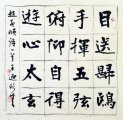 目送歸鴻
手揮五弦
俯仰自得
游心太玄